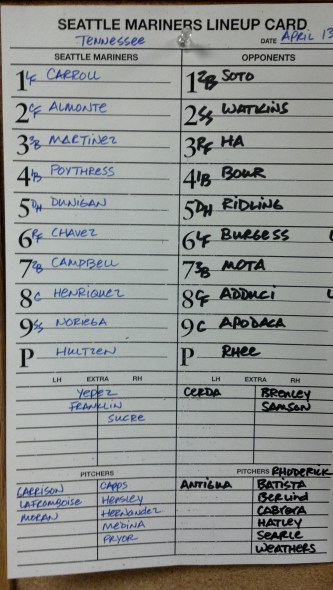 SEATTLE MARINERS LINEUP CARD
TENNESSEE
DATE APRIL 13
SEATTLE MARINERS
1 LF CARROLL
2 CF ALMONTE
3 3B MARTINEZ
4 1B POYTHRESS
5 DH DUNIGAN
6 RF CHAVEZ
7 2B CAMPBELL
8 C HENRIQUEZ
9 SS NORIEGA
P HULTZEN
LH EXTRA RH
YEPEZ
FRANKLIN
SUCRE
PITCHERS
CARRISON CAPPS
LAFROMBOISE HENSLEY
MORAN HERNANDEZ
MEDINA
PRYOR
OPPONENTS
1 2B SOTO
2 SS WATKINS
3 RF HA
4 1B BOUR
5 DH RIDLING
6 LF BURGESS
7 3B MOTA
8 CF ADDUCI
9 C APODACA
P RHEE
LH EXTRA RH
CERDA BRENLY
SAMSON
PITCHERS RHODERICK
ANTIGUA BATISTA
BERLIND
CABRERA
HATLEY
SEARLE
WEATHERS